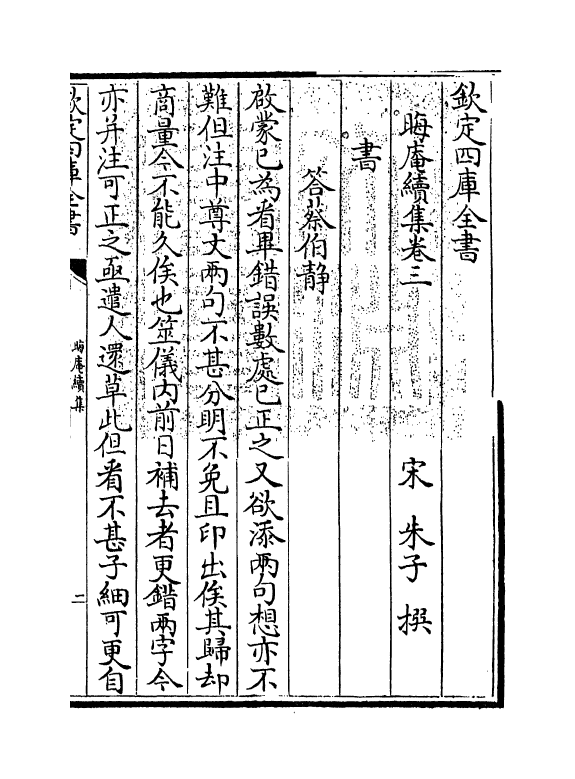 欽定四庫全書
晦庵續集卷三
宋 朱子 撰
書
答蔡伯静
啟蒙已為看畢錯誤數處已正之又欲添兩句想亦不
難但注中尊丈兩句不甚分明不免且印出俟其歸却
商量今不能久俟也筮儀内前日補去者更錯兩字今
亦并注可正之亟遣人還草此但看不甚子細可更自
欽定四庫全書
晦庵續集